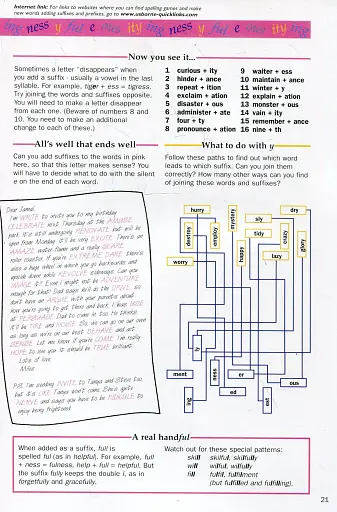 Internet link: For links to websites where you can find spelling games and make
new words adding suffixes and prefixes, go to www.usborne-quicklinks.com
ing ness y ful e ous ity ing ness y ful
Now you see it...
Sometimes a letter "disappears" when
you add a suffix - usually a vowel in the last
syllable. For example, tiger + ess = tigress.
Try joining the words and suffixes opposite.
You will need to make a letter disappear
from each one. (Beware of numbers 8 and
10. You need to make an additional
change to each of these.)
1 curious + ity
2 hinder + ance
3 repeat + ition
4 exclaim + ation
5 disaster + ous
6 administer + ate
7 four + ty
8 pronounce + ation
9 waiter + ess
10 maintain + ance
11 winter + y
12 explain + ation
13 monster + ous
14 vain + ity
15 remember + ance
16 nine + th
All's well that ends well
Can you add suffixes to the words in pink
here, so that this letter makes sense? You will
have to decide what to do with the silent
e on the end of each word.
Dear Jamal
I'm WRITE to invite you to my birthday
CELEBRATE next Thursday at the AMUSE
park. It is still undergoing RENOVATE but will be
open from Monday. It'll be very EXCITE. There's an
AMAZE water-flume and a really SCARE
roller coaster. If you're EXTREME DARE there's
also a huge wheel in where you go backwards and
upside down while REVOLVE sideways. Can you
IMAGE it? Even I might not be ADVENTURE
enough for that! Dad says he'll do the DRIVE, so
don't have an ARGUE with your parents about
how you're going to get there and back. I was HOPE
to PERSUADE Dad to come in too. He thinks
it'll be TIRE and NOISE. So, we can go on our own
as long as we're on our best BEHAVE and act
SENSE. Let me know if you're COME. I'm really
HOPE to see you. It should be TRUE brilliant.
Lots of love
Mike
P.S. I'm sending INVITE to Tanya and Steve too,
but it's LIKE Tanya won't come. She's quite
NERVE and says you have to be RIDICULE to
enjoy being frightened.
What to do with y
Follow these paths to find out which word
leads to which suffix. Can you join them
correctly? How many other ways can you find
of joining these words and suffixes?
hurry
mystery
dry
sly
destroy
employ
tidy
crazy
glory
happy
worry
lazy
ly
ment
ness
er
ous
ing
ed
est
A real handful
When added as a suffix, full is
spelled ful (as in helpful). For example, full
+ ness = fulness, help + full = helpful. But
the suffix fully keeps the double l, as in
forgetfully and gracefully.
Watch out for these special patterns:
skill skilful, skilfully
will wilful, wilfully
fill fulfil, fulfilment
(but fulfilled and fulfilling).
21